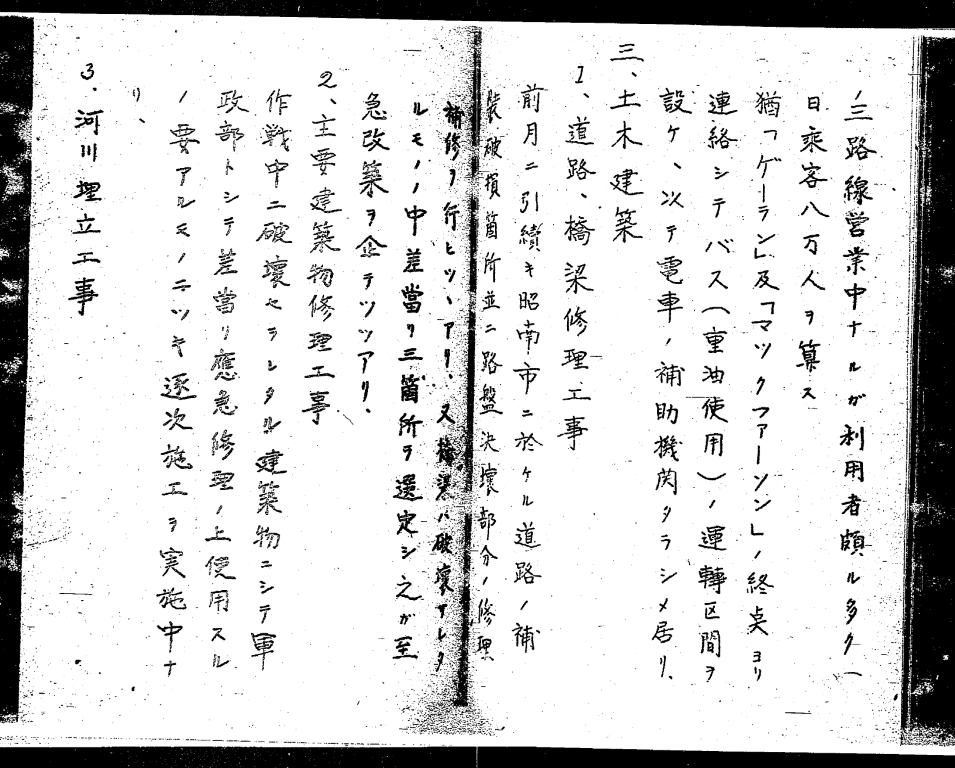 ノ三路線営業中ナルガ利用者頗ル多ク一
日乘客八万人ヲ算ス
猶「ゲーラン」及「マックファーソン」ノ終点ヨリ
連絡シテバス(重油使用)ノ運轉区間ヲ
設ケ、次テ電車ノ補助機関タラシメ居リ、
三、土木建築
1、道路、橋梁修理工事
前月ニ引續キ昭南市ニ於ケル道路ノ補
裝破損箇所並ニ路盤決壊部分ノ修理
補修ヲ行ヒツヽアリ、又橋梁ハ破壊サレタ
ルモノノ中差當リ三箇所ヲ選定シ之ガ至
急改築ヲ企テツツアリ、
2、主要建築物修理工事
作戦中ニ破壊セラレタル建築物ニシテ軍
政部トシテ差當リ應急修理ノ上使用スル
ノ要アルモノニツキ逐次施工ヲ実施中ナ
リ、
3、河川埋立工事